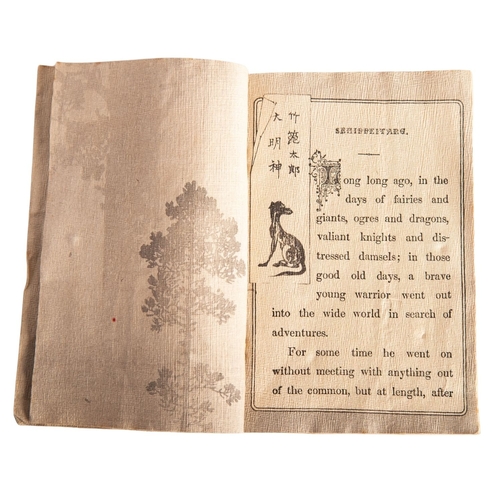 竹箆太郎
大明神
SCHIPPEITARO.
Long long ago, in the
days of fairies and
giants, ogres and dragons,
valiant knights and dis-
tressed damsels; in those
good old days, a brave
young warrior went out
into the wide world in search of
adventures.
For some time he went on
without meeting with anything out
of the common, but at length, after